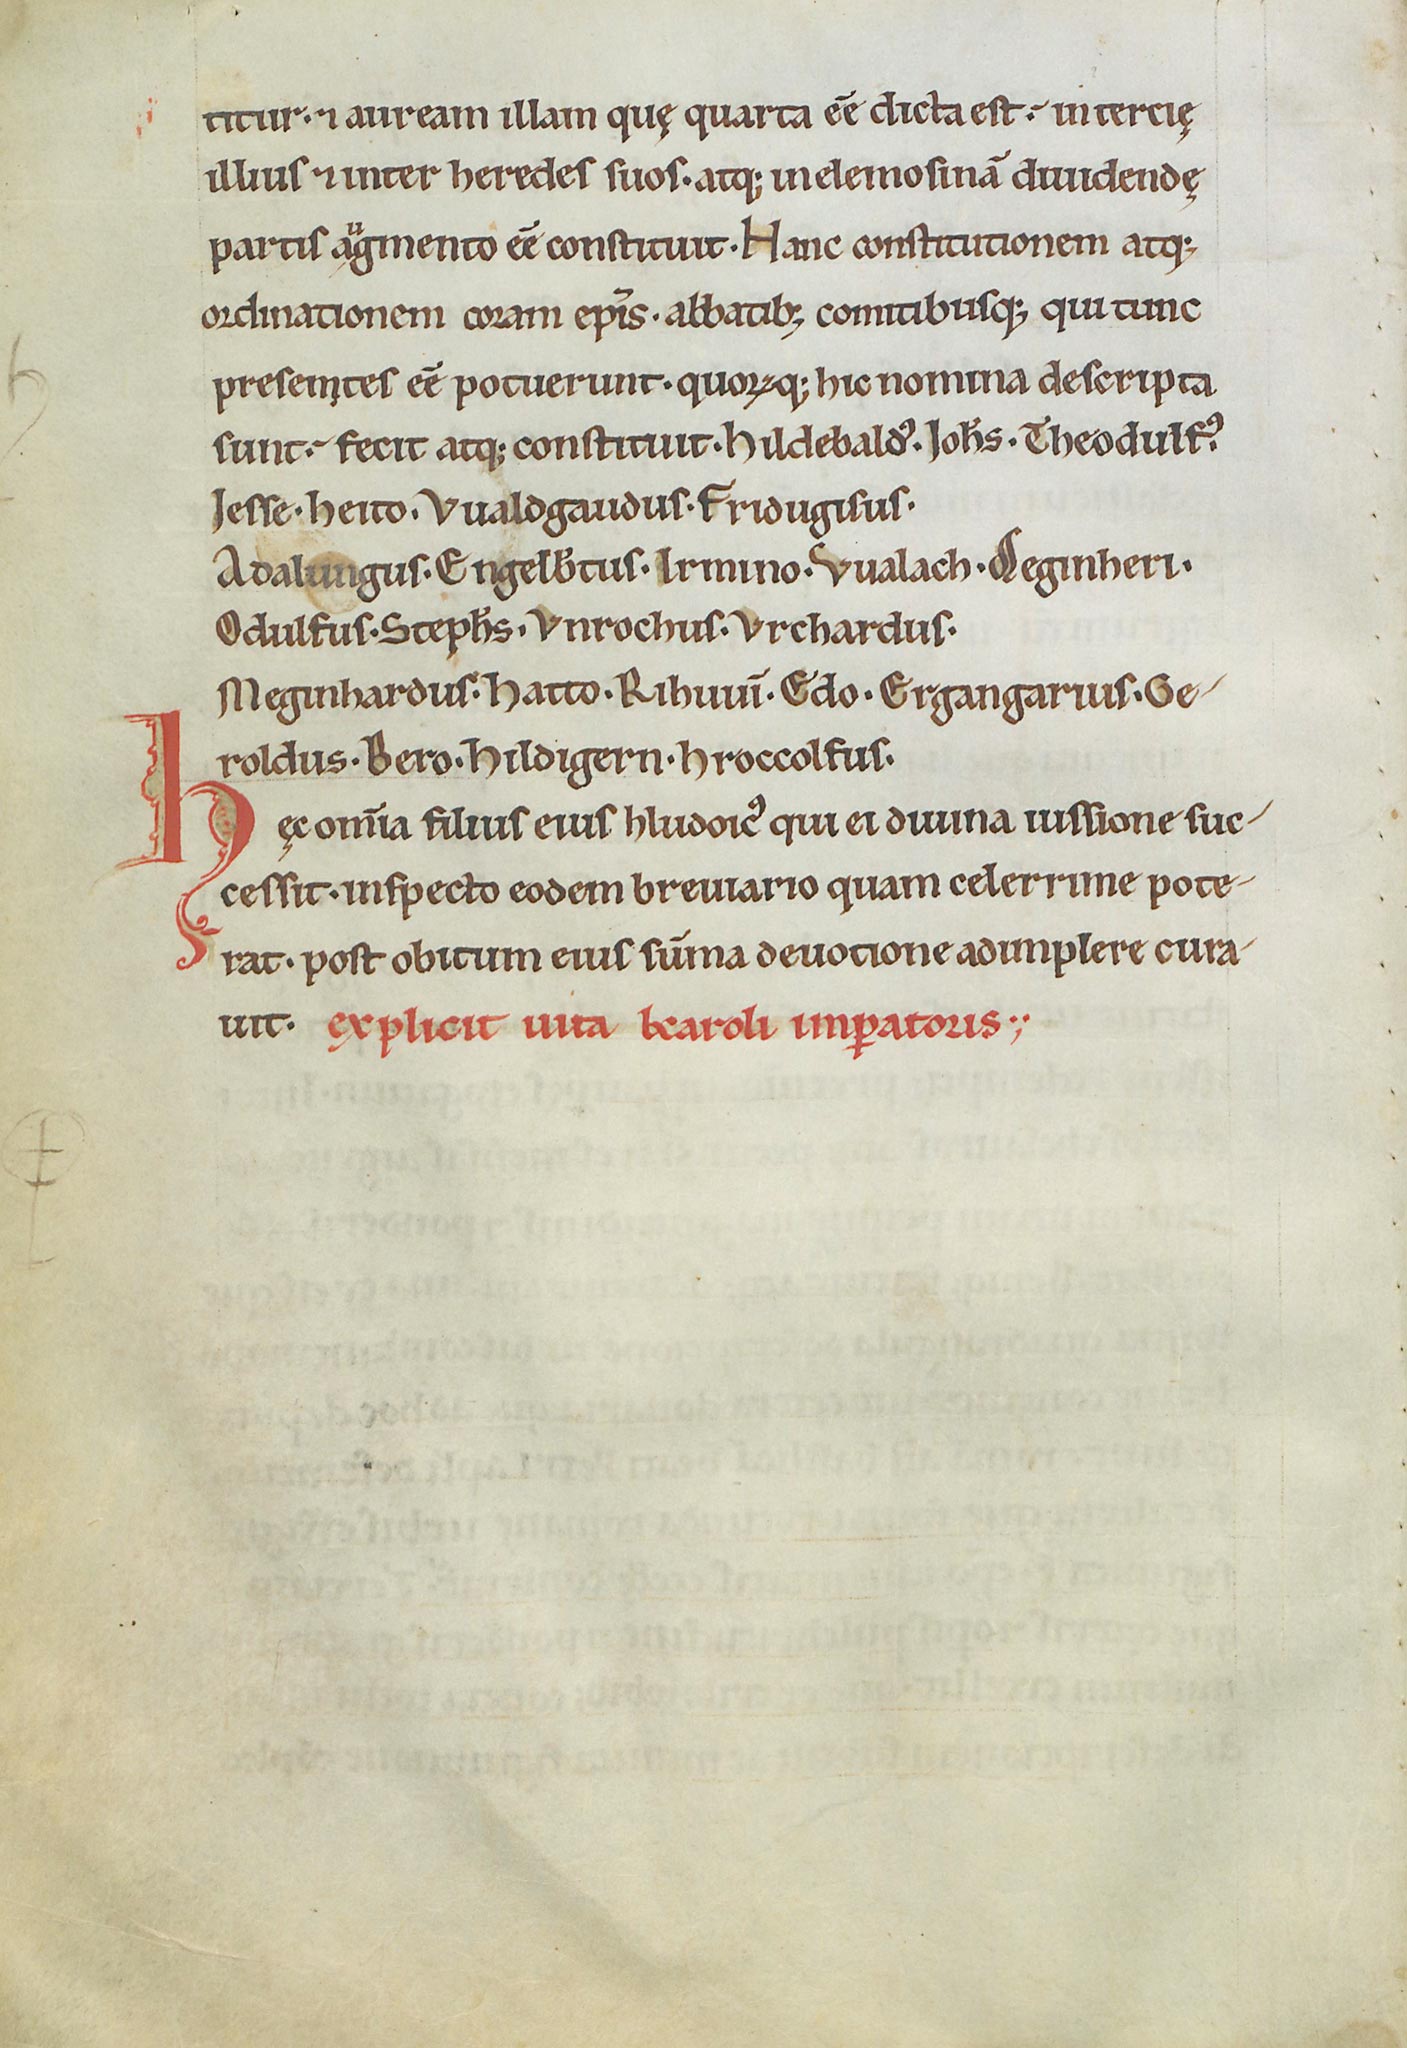 titur· ⁊ auream illam quę quarta eē dicta est·̃ in tercię
illius ⁊ inter heredes suos· atq; in elemosinā diuidendę
partis augmento eē constituit· Hanc constitutionem atq;
ordinationem coram ep̄is· abbatib; comitibusq; qui tunc
presentes eē potuerunt· quoꝝq; hic nomina descripta
sunt·̃ fecit atq; constituit· hildebaldꝰ· Joh̄s· Theodulfꝰ·
Jesse· heito· Vualdgaudus· Fridugisus·
Adalungus· Engelb̄tus· Irmino· Vualach· Meginheri·
Odulfus· Steph̄s· Vnrochus· Vrchardus·
Meginhardus· hatto· Rihuuī· Edo· Ergangarius· Ge-
roldus· Bero· hildigern· hroccolfus·
Hęc om̄ia filius eius hludoicꝰ qui ei diuina iussione suc-
cessit· inspecto eodem breuiario quam celerrime pote-
rat· post obitum eius sūma deuotione adimplere cura-
uit· explicit uita b karoli imꝑatoris·,·